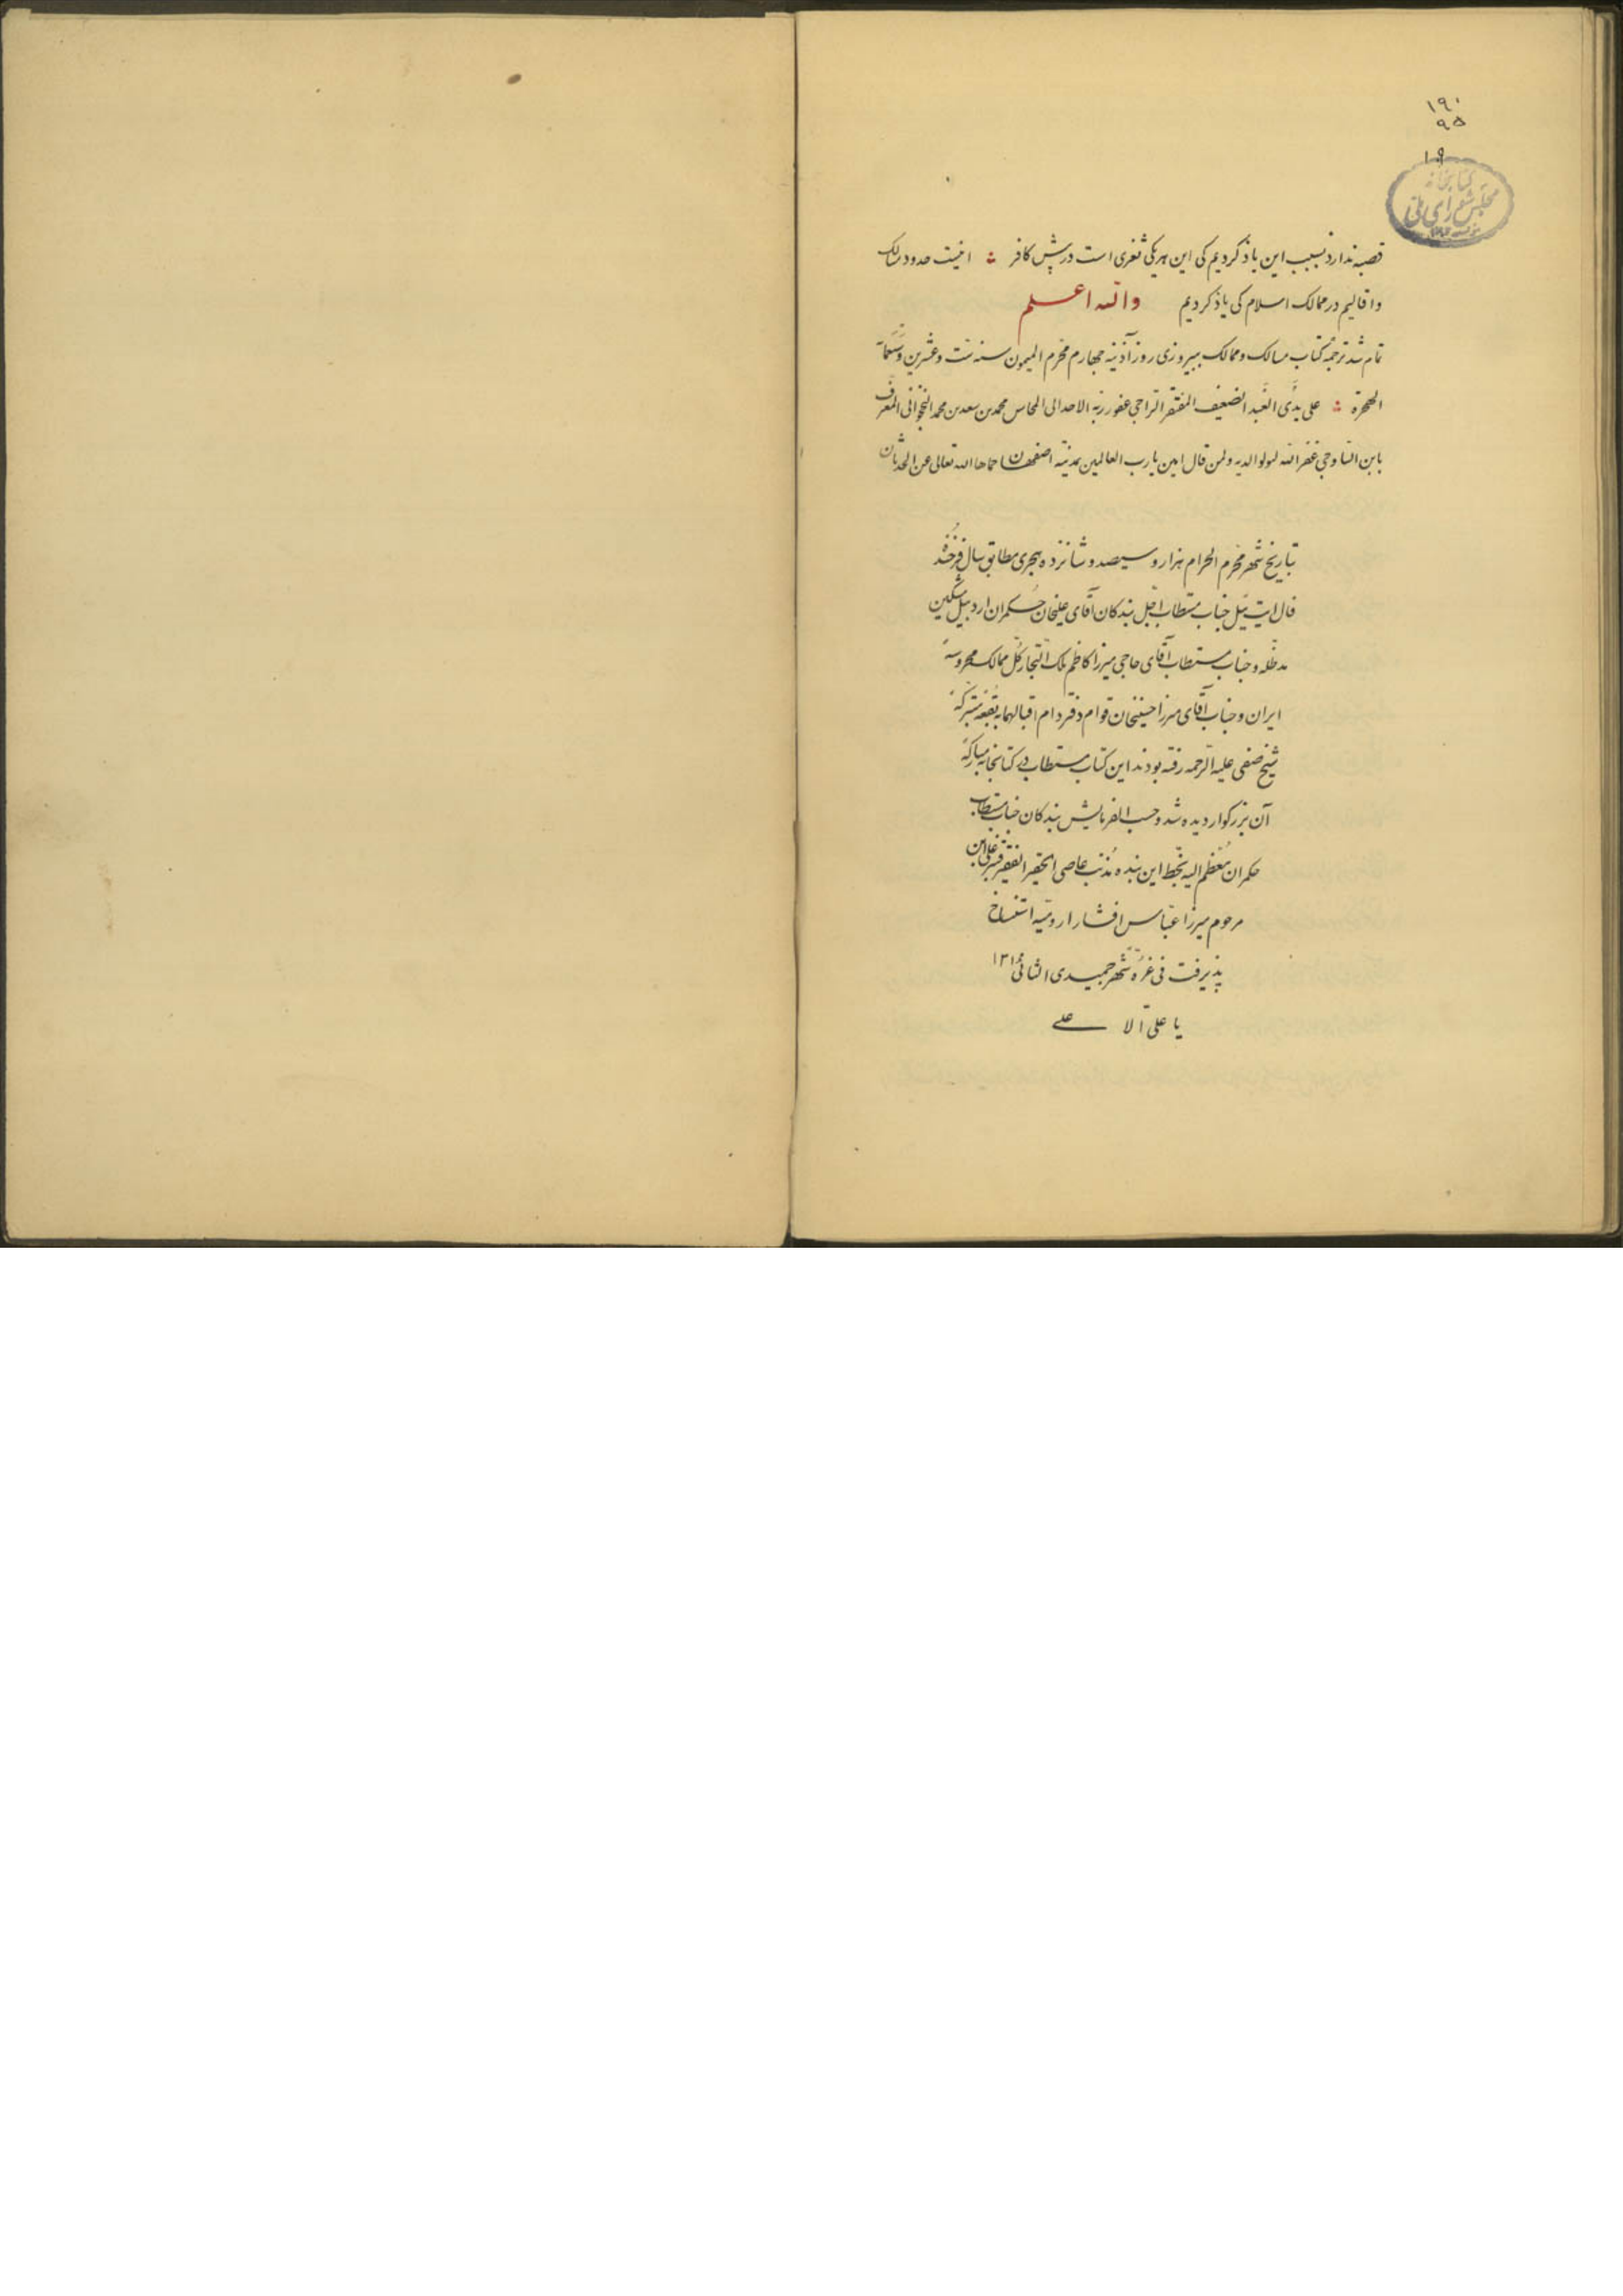 ۱۹۰
۹۵
۱۹
کتابخانه
مجلس شورای ملی
قصبه ندارد بسبب این یاذ کردیم کی این هر یکی ثغری است در پیش کافر ؞ اینست حدود ممالک
و اقالیم در ممالک اسلام کی یاذ کردیم والله اعلم
تمام شد ترجمه کتاب مسالک و ممالک بپیروزی روز آذینه چهارم محرم المیمون سنه ست و عشرین و سبعمائة
الهجرة ؞ علی یدی العبد الضعیف المفتقر الراجی عفو ربه الاحد ابی المحاسن محمد بن سعد بن محمد النخجوانی المعرف
بابن الساوجی غفر الله له ولوالدیه ولمن قال امین یا رب العالمین بمدینه اصفهان حماها الله تعالی عن الحدثان
بتاریخ شهر محرم الحرام هزار و سیصد و شانزده هجری مطابق سال فرخنده
فال ایت ئیل جناب مستطاب اجل بندکان آقای علیخان حکمران اردبیل مشکین
مدظله و جناب مستطاب آقای حاجی میرزا کاظم ملک التجار کل ممالک محروسهٔ
ایران و جناب آقای میرزا حسینخان قوام دفتر دام اقبالهما به بقعه متبرکهٔ
شیخ صفی علیه الرحمه رفته بودند این کتاب مستطاب در کتابخانه مبارکهٔ
آن بزرکوار دیده شد و حسب الفرمایش بندکان جناب مستطاب
حکمران معظم الیه بخط این بنده مذنب عاصی الحقیر الفقیر قنبرعلی ابن
مرحوم میرزا عباس افشار ارومیه استنساخ
پذیرفت فی غره شهر جمیدی الثانی ۱۳۱۶
یا علی الاعلی